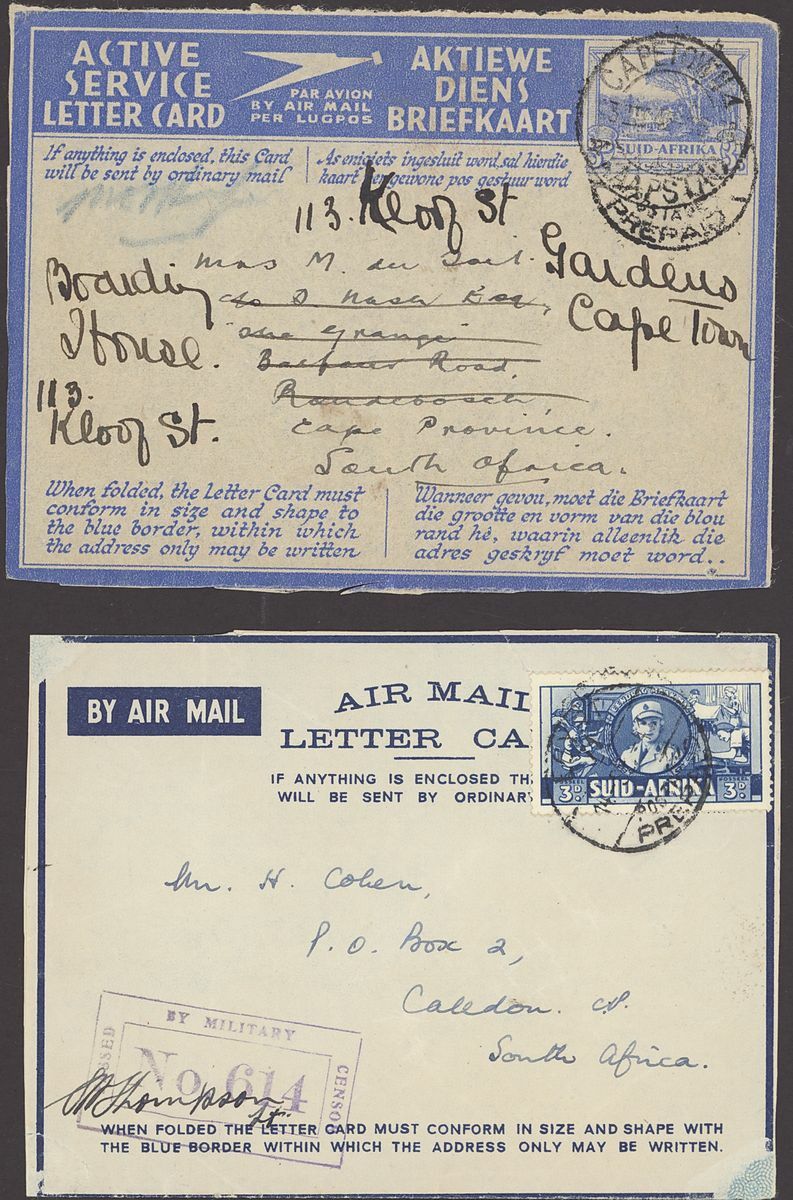 ACTIVE
SERVICE
LETTER CARD
PAR AVION
BY AIR MAIL
PER LUGPOS
AKTIEWE
DIENS
BRIEFKAART
SUID-AFRIKA
CAPETOWN
PREPAID
If anything is enclosed, this Card
will be sent by ordinary mail
As enigiets ingesluit word, sal hierdie
kaart per gewone pos gestuur word
113. Kloof St
Gardens
Cape Town
Boarding
House.
113.
Kloof St.
Mrs M. du
c/o S. Nash Esq,
The Grange
Road,
Rondebosch,
Cape Province.
South Africa.
When folded, the Letter Card must
conform in size and shape to
the blue border, within which
the address only may be written
Wanneer gevou, moet die Briefkaart
die grootte en vorm van die blou
rand hê, waarin alleenlik die
adres geskryf moet word..
BY AIR MAIL
AIR MAIL
LETTER CA
IF ANYTHING IS ENCLOSED TH
WILL BE SENT BY ORDINARY
3D
SUID-AFRIKA
POSSEEL
3D
Mr. H. Cohen,
P.O. Box 2,
Caledon. CP.
South Africa.
BY MILITARY
SSED
No 614
CENSO
Thompson
Lt.
WHEN FOLDED THE LETTER CARD MUST CONFORM IN SIZE AND SHAPE WITH
THE BLUE BORDER WITHIN WHICH THE ADDRESS ONLY MAY BE WRITTEN.